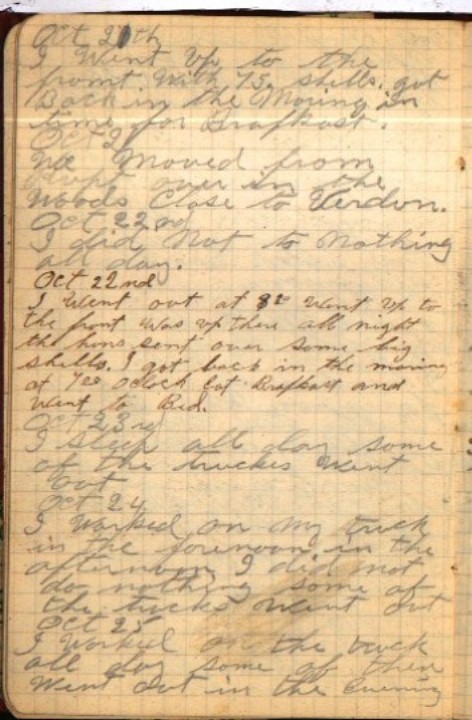 Oct 20th
I Went Up to the
fromt With 75 shells. got
Back in the Moring in
time for Brafkast.
Oct 21
We Moved from
over in the
Woods Close to Verdon.
Oct 22nd
I did Not to Nothing
all day.
Oct 22nd
I Went out at 8 00 Want Up to
the front Was up there all night
the huns sent over some big
shells. I got back in the morning
at 7 00 oclock Eat Brafkast and
Went to Bed.
Oct 23rd
I sleep all day some
of the truckes Went
out
Oct 24
I Worked on my truck
in the forenoon in the
afternoon I did not
do nothing some of
the trucks Went out
Oct 25
I Worked on the truck
all day some of them
Went out in the Evening